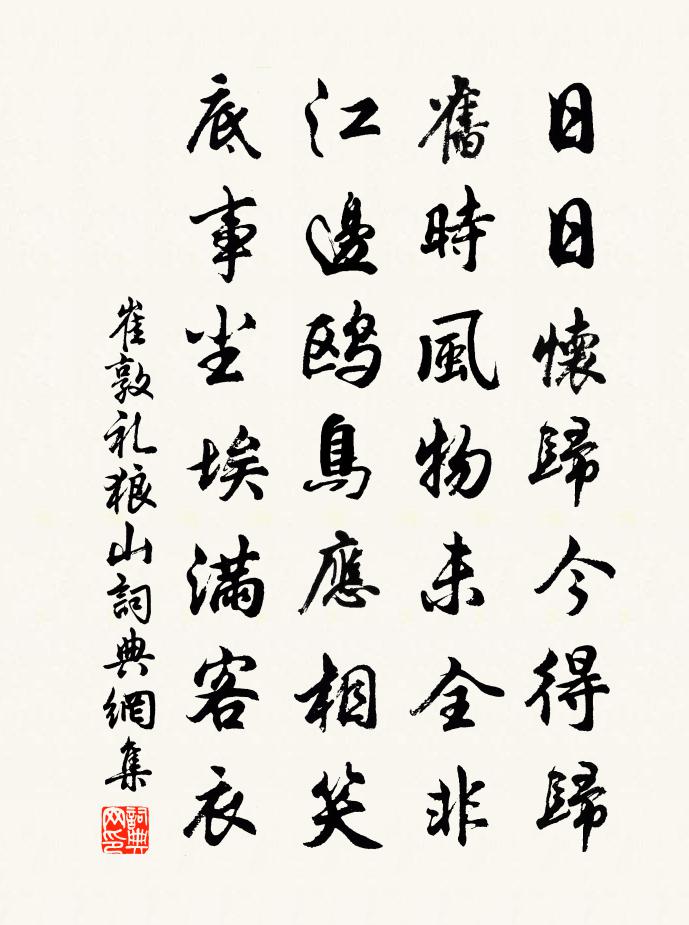 日日懷歸今得歸
舊時風物未全非
江邊鷗鳥應相笑
底事尘埃滿客衣
崔敦礼狼山詞典網集
詞典网印